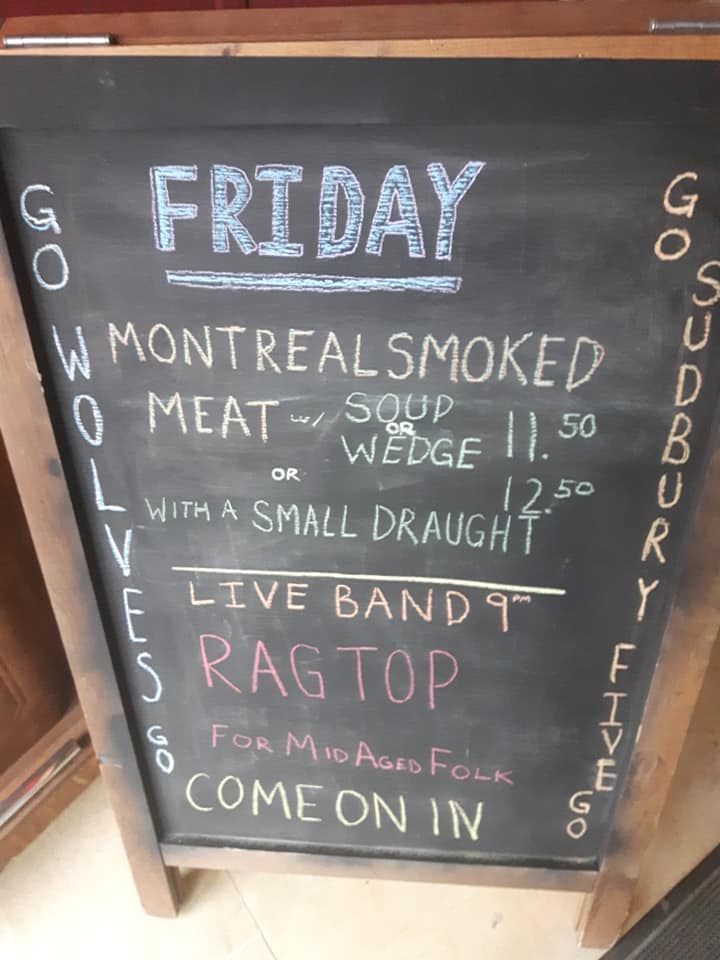 FRIDAY
MONTREAL SMOKED
MEAT w/ SOUP
OR
WEDGE 11.50
OR
12.50
WITH A SMALL DRAUGHT
LIVE BAND 9PM
RAGTOP
FOR MID AGED FOLK
COME ON IN
GO WOLVES GO
GO SUDBURY FIVE GO